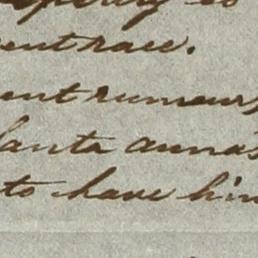 ent race.
ent rumours
Santa anna's
to have him